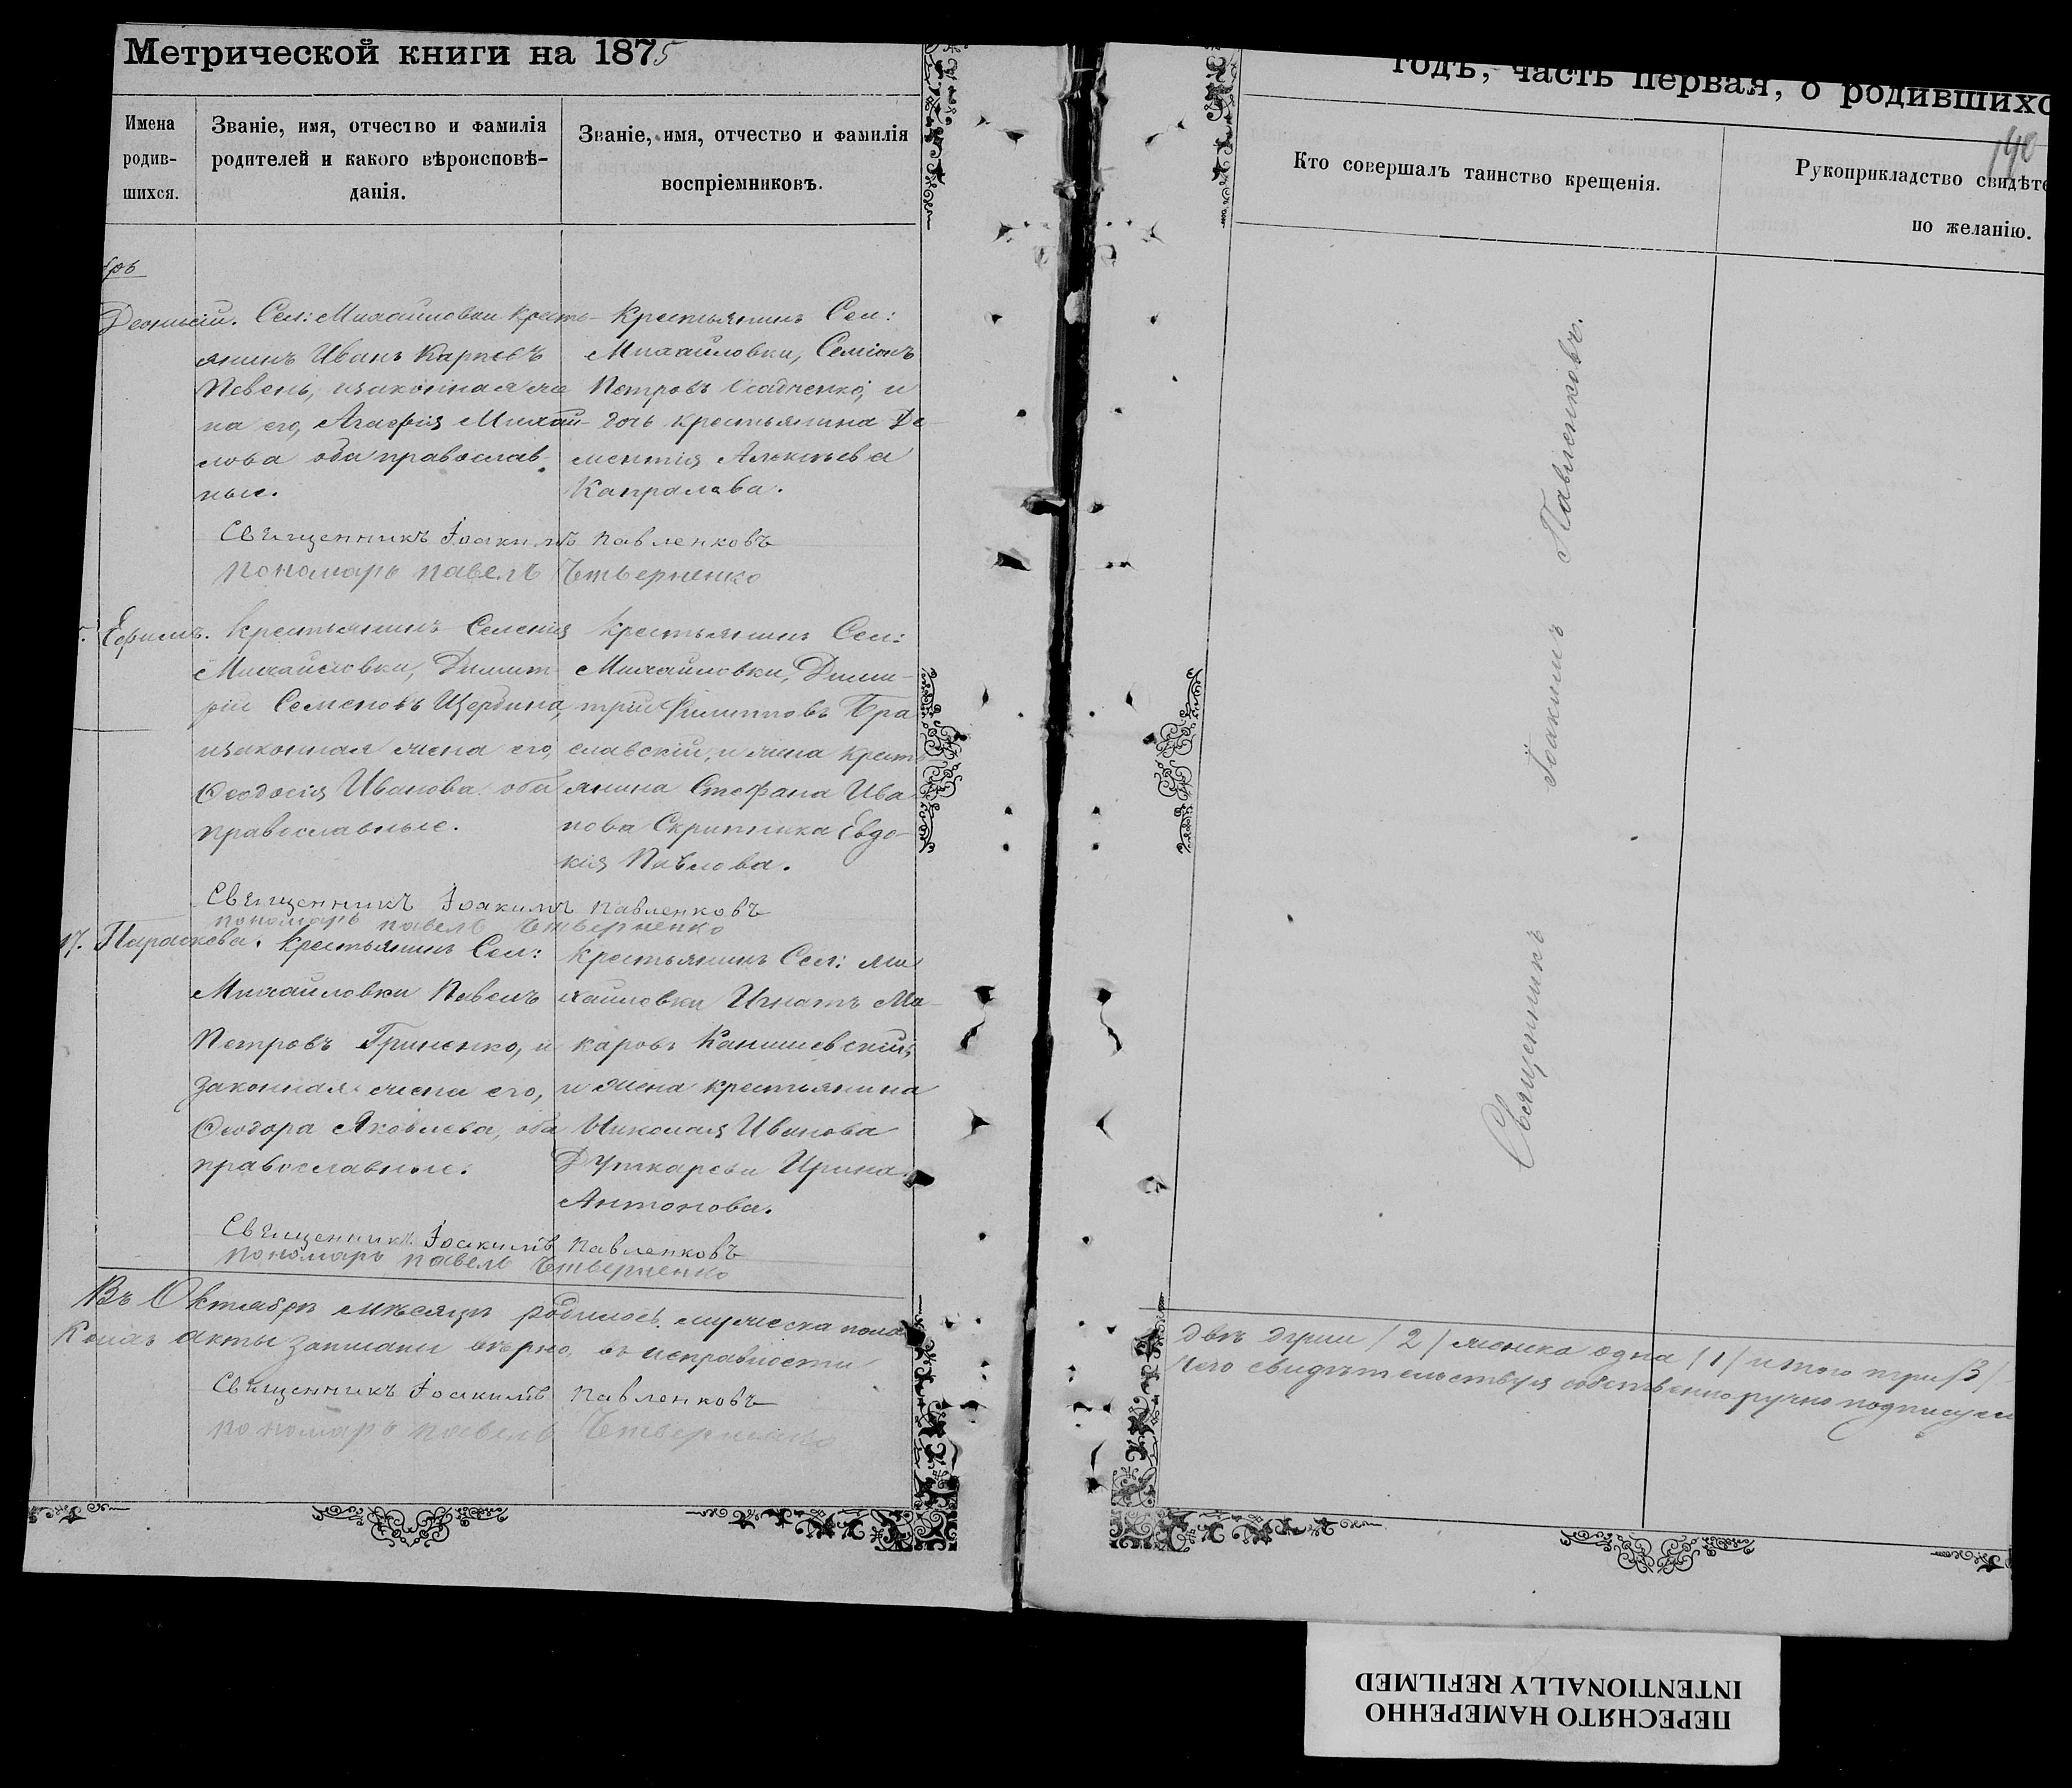 Метрической книги на 1875
Имена родив-шихся.
Званіе, имя, отчество и фамилія родителей и какого вѣроисповѣ-данія.
Званіе, имя, отчество и фамилія воспріемниковъ.
брь
Деонисій.
Сел: Михайловки крестья-
янинъ Иванъ Карповъ
Певень, и законная же
на его, Агафія Михай-
лова оба православ-
ные.
Крестьянинъ Сел:
Михайловки, Семіонъ
Петровъ Осадченко, и
дочь крестьянина Де-
ментія Алексѣева
Капралова.
Священникъ Іоакимъ Павленковъ
пономарь павелъ Четверненко
Ефимъ.
Крестьянинъ Селенія
Михайловки, Димит-
рій Семеновъ Щербина,
и законная жена его,
Ѳеодосія Иванова оба
православные.
Крестьянинъ Сел:
Михайловки, Дими-
трій Филипповъ Бра
славскій, и жена кресть-
янина Стефана Ива
нова Скрипника Евдо-
кія Павлова.
Священникъ Іоакимъ Павленковъ
пономарь павелъ Четверненко
17. Параскева.
Крестьянинъ Сел:
Михайловки Павелъ
Петровъ Гриненко, и
законная жена его,
Ѳеодора Яковлева, оба
православные.
Крестьянинъ Сел: Ми
хайловки Игнатъ Ма-
каровъ Канишевскій,
и жена крестьянина
Николая Иванова
Ирина
Антонова.
Священникъ Іоакимъ Павленковъ
пономарь павелъ Четверненко
Въ Октябрѣ мѣсяцѣ родилось мужеска пола
Коихъ акты записаны вѣрно, въ исправности
Священникъ Іоакимъ Павленковъ
пономарь павелъ Четверненко
годъ, часть первая, о родившихс
140
Кто совершалъ таинство крещенія.
Рукоприкладство свидѣте
по желанію.
Священникъ Іоакимъ Павленковъ.
двѣ души /2/ женска одна /1/ итого три /3/
чего свидѣтельствуя собственноручно подписуем
ПЕРЕСНЯТО НАМЕРЕННО
INTENTIONALLY REFILMED